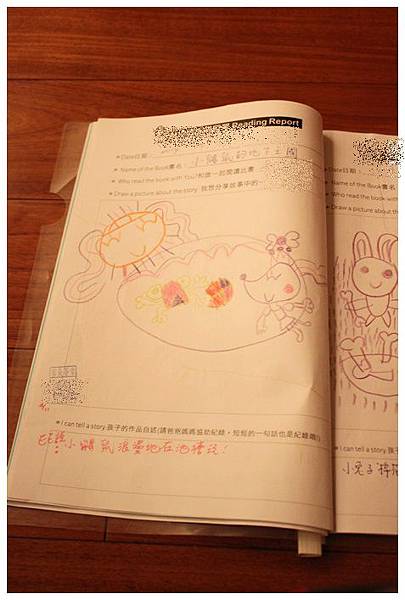 Reading Report
Date日期：
Name of the Book書名：小鼴鼠的地下王國
Who read the book with You?和誰一起閱讀此書
Draw a picture about the story 我想分享故事中的
I can tell a story 孩子的作品自述(請爸爸媽媽協助紀錄，短短的一句話也是紀錄喔!)
小鼴鼠浪漫地在泡
Date日期：
Name of the Book書名：
Who read the book with
Draw a picture about the
I can tell a story
小兔子